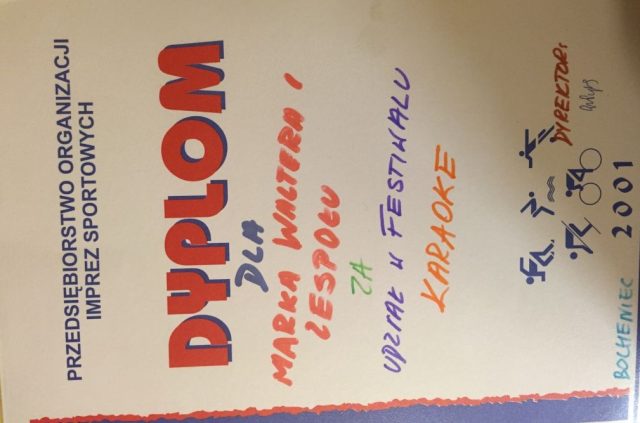 PRZEDSIĘBIORSTWO ORGANIZACJI
IMPREZ SPORTOWYCH
DYPLOM
DLA
MARKA WALTERA I
ZESPOŁU
ZA
UDZIAŁ W FESTIWALU
KARAOKE
DYREKTOR:
BOCHENIEC 2001